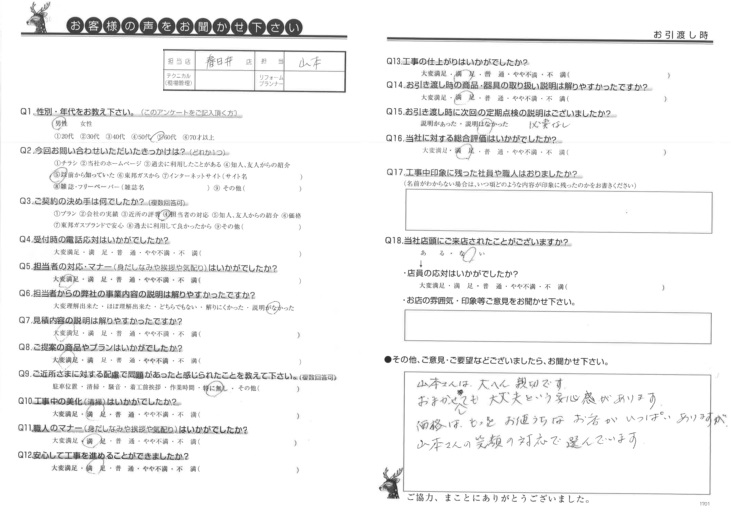 お客様の声をお聞かせ下さい
お引渡し時
担当店 春日井 店 担当 山本
テクニカル(現場管理) リフォームプランナー
Q1.性別・年代をお教え下さい。(このアンケートをご記入頂く方)
男性 女性
①20代 ②30代 ③40代 ④50代 ⑤60代 ⑥70才以上
Q2.今回お問い合わせいただいたきっかけは?(どれか1つ)
①チラシ ②当社のホームページ ③過去に利用したことがある ④知人、友人からの紹介
⑤以前から知っていた ⑥東邦ガスから ⑦インターネットサイト(サイト名 )
⑧雑誌・フリーペーパー(雑誌名 ) ⑨その他( )
Q3.ご契約の決め手は何でしたか?(複数回答可)
①プラン ②会社の実績 ③近所の評判 ④担当者の対応 ⑤知人、友人からの紹介 ⑥価格
⑦東邦ガスブランドで安心 ⑧過去に利用して良かったから ⑨その他( )
Q4.受付時の電話応対はいかがでしたか?
大変満足・満 足・普 通・やや不満・不 満( )
Q5.担当者の対応・マナー(身だしなみや挨拶や気配り)はいかがでしたか?
大変満足・満 足・普 通・やや不満・不 満( )
Q6.担当者からの弊社の事業内容の説明は解りやすかったですか?
大変理解出来た・ほぼ理解出来た・どちらでもない・解りにくかった・説明がなかった
Q7.見積内容の説明は解りやすかったですか?
大変満足・満 足・普 通・やや不満・不 満( )
Q8.ご提案の商品やプランはいかがでしたか?
大変満足・満 足・普 通・やや不満・不 満( )
Q9.ご近所さまに対する配慮で問題があったと感じられたことを教えて下さい。(複数回答可)
駐車位置・清掃・騒音・着工前挨拶・作業時間・特に無し・その他( )
Q10.工事中の美化(清掃)はいかがでしたか?
大変満足・満 足・普 通・やや不満・不 満( )
Q11.職人のマナー(身だしなみや挨拶や気配り)はいかがでしたか?
大変満足・満 足・普 通・やや不満・不 満( )
Q12.安心して工事を進めることができましたか?
大変満足・満 足・普 通・やや不満・不 満( )
Q13.工事の仕上がりはいかがでしたか?
大変満足・満 足・普 通・やや不満・不 満( )
Q14.お引き渡し時の商品・器具の取り扱い説明は解りやすかったですか?
大変満足・満 足・普 通・やや不満・不 満( )
Q15.お引き渡し時に次回の定期点検の説明はございましたか?
説明があった・説明はなかった 必要なし
Q16.当社に対する総合評価はいかがでしたか?
大変満足・満 足・普 通・やや不満・不 満( )
Q17.工事中印象に残った社員や職人はおりましたか?
(名前がわからない場合は、いつ頃どのような内容が印象に残ったのかをお書きください)
Q18.当社店頭にご来店されたことがございますか?
ある・ない
・店員の応対はいかがでしたか?
大変満足・満 足・普 通・やや不満・不 満( )
・お店の雰囲気・印象等ご意見をお聞かせ下さい。
●その他、ご意見・ご要望などございましたら、お聞かせ下さい。
山本さんは 大へん 親切です
おまかせでも 大丈夫という安心感があります
価格は もっと お値うちな お店が いっぱい ありますが
山本さんの笑顔の対応で選んでいます
ご協力、まことにありがとうございました。